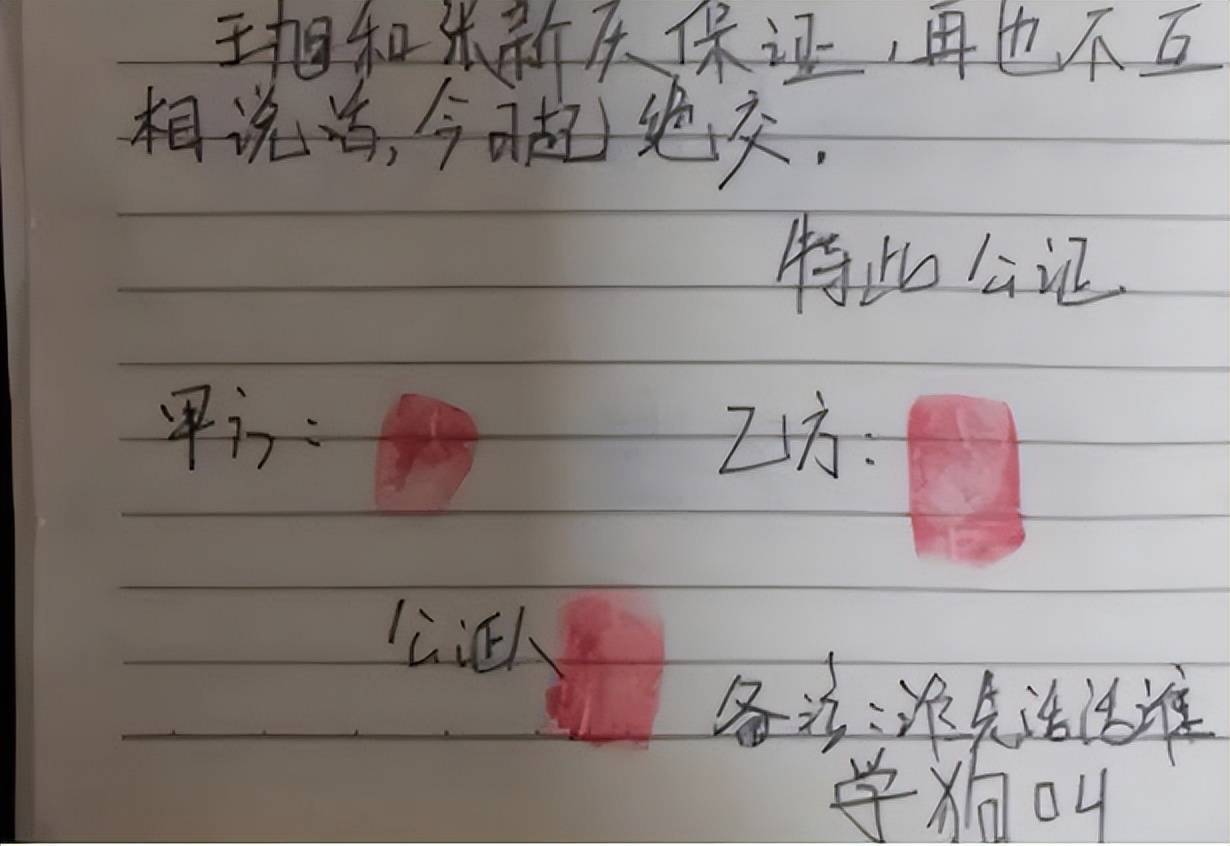 王旭和张新庆保证,再也不互
相说话,今日起绝交.
特此公证.
甲方:
乙方:
公证人
备注:谁先说话谁
学狗叫